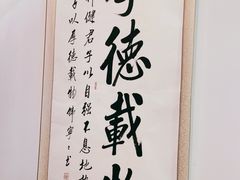 厚德載物
行健君子以自強不息地
子以厚德載物